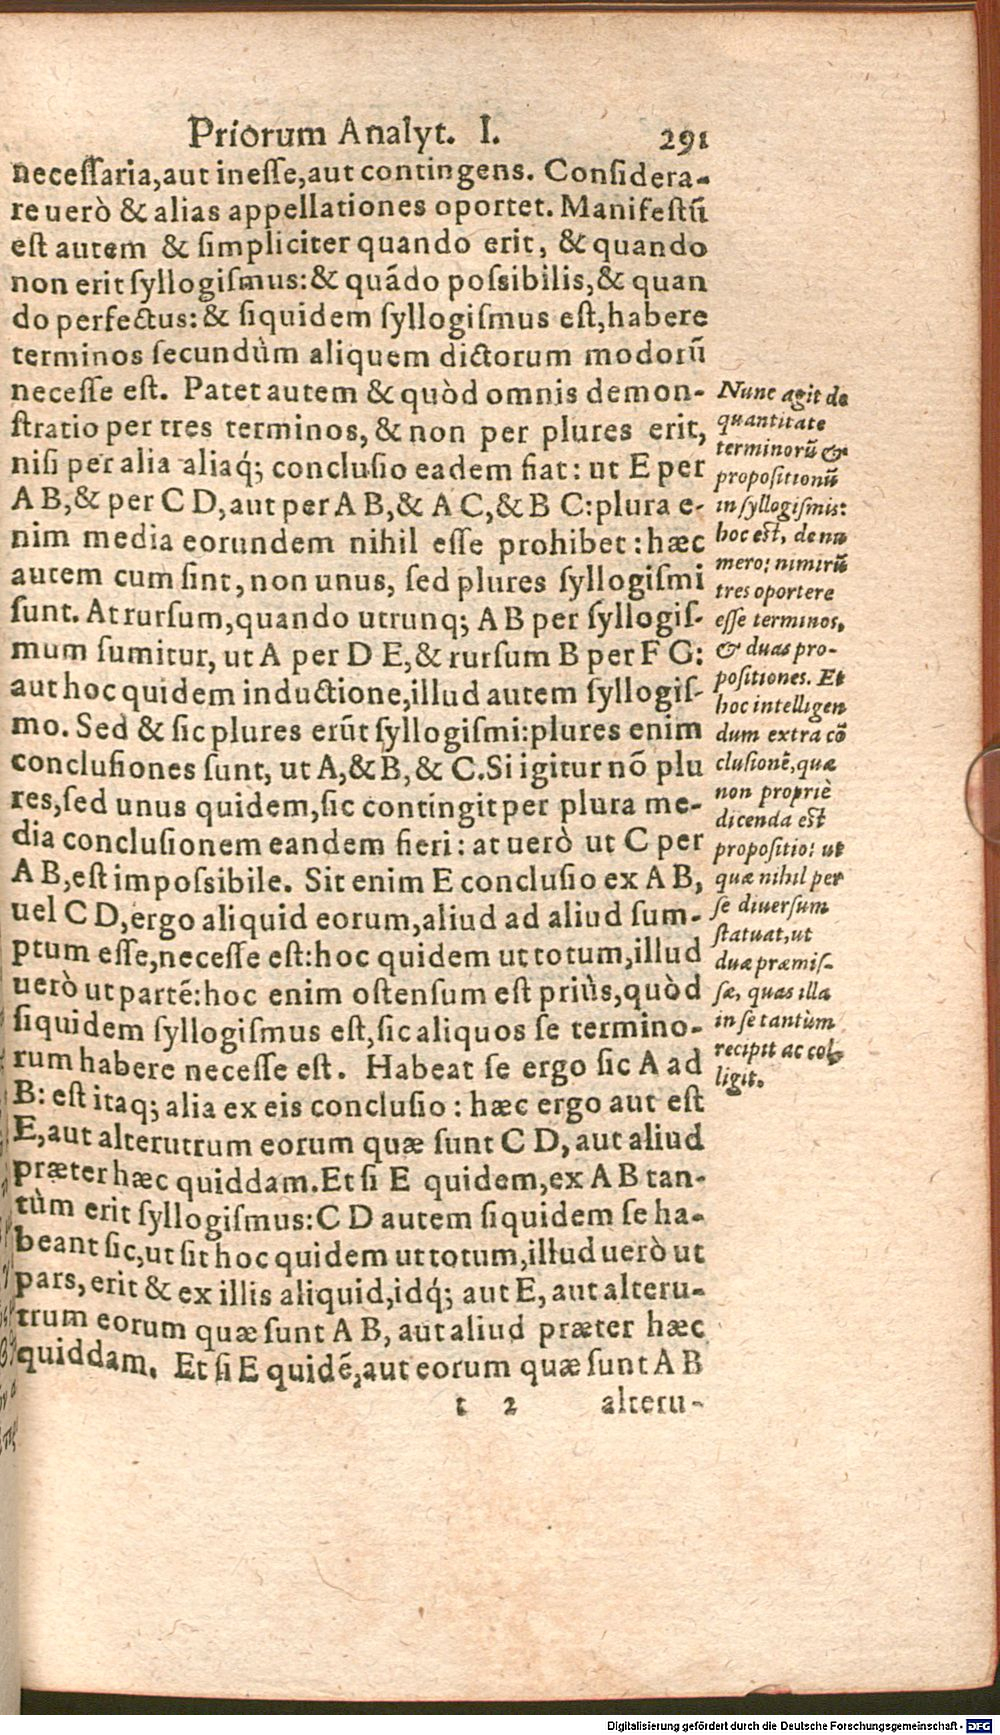 Priorum Analyt. I. 291
necessaria,aut inesse,aut contingens. Considera-
re uerò & alias appellationes oportet. Manifestũ
est autem & simpliciter quando erit, & quando
non erit syllogismus:& quãdo possibilis,& quan
do perfectus:& siquidem syllogismus est,habere
terminos secundùm aliquem dictorum modorũ
necesse est. Patet autem & quòd omnis demon-
stratio per tres terminos, & non per plures erit,
nisi per alia aliaq́; conclusio eadem fiat: ut E per
A B,& per C D,aut per A B,& A C,& B C:plura e-
nim media eorundem nihil esse prohibet:hæc
autem cum sint, non unus, sed plures syllogismi
sunt. At rursum,quando utrunq; A B per syllogis-
mum sumitur, ut A per D E,& rursum B per F G:
aut hoc quidem inductione,illud autem syllogis-
mo. Sed & sic plures erũt syllogismi:plures enim
conclusiones sunt, ut A,& B,& C.Si igitur nõ plu
res,sed unus quidem,sic contingit per plura me-
dia conclusionem eandem fieri: at uerò ut C per
A B,est impossibile. Sit enim E conclusio ex A B,
uel C D,ergo aliquid eorum,aliud ad aliud sum-
ptum esse,necesse est:hoc quidem ut totum,illud
uerò ut partẽ:hoc enim ostensum est priùs,quòd
siquidem syllogismus est,sic aliquos se termino-
rum habere necesse est. Habeat se ergo sic A ad
B: est itaq; alia ex eis conclusio : hæc ergo aut est
E,aut alterutrum eorum quæ sunt C D, aut aliud
præter hæc quiddam.Et si E quidem,ex A B tan-
tùm erit syllogismus:C D autem siquidem se ha-
beant sic,ut sit hoc quidem ut totum,illud uerò ut
pars, erit & ex illis aliquid,idq́; aut E, aut alteru-
trum eorum quæ sunt A B, aut aliud præter hæc
quiddam. Et si E quidẽ,aut eorum quæ sunt A B
t 2 alteru-
Nunc agit de
quantitate
terminorũ &
propositionũ
in syllogismis:
hoc est, de nu
mero; nimirũ
tres oportere
esse terminos,
& duas pro-
positiones. Et
hoc intelligen
dum extra cõ
clusionẽ,quæ
non propriè
dicenda est
propositio: ut
quæ nihil per
se diuersum
statuat,ut
duæ præmis-
sæ, quas illa
in se tantùm
recipit ac col-
ligit.
Digitalisierung gefördert durch die Deutsche Forschungsgemeinschaft - DFG